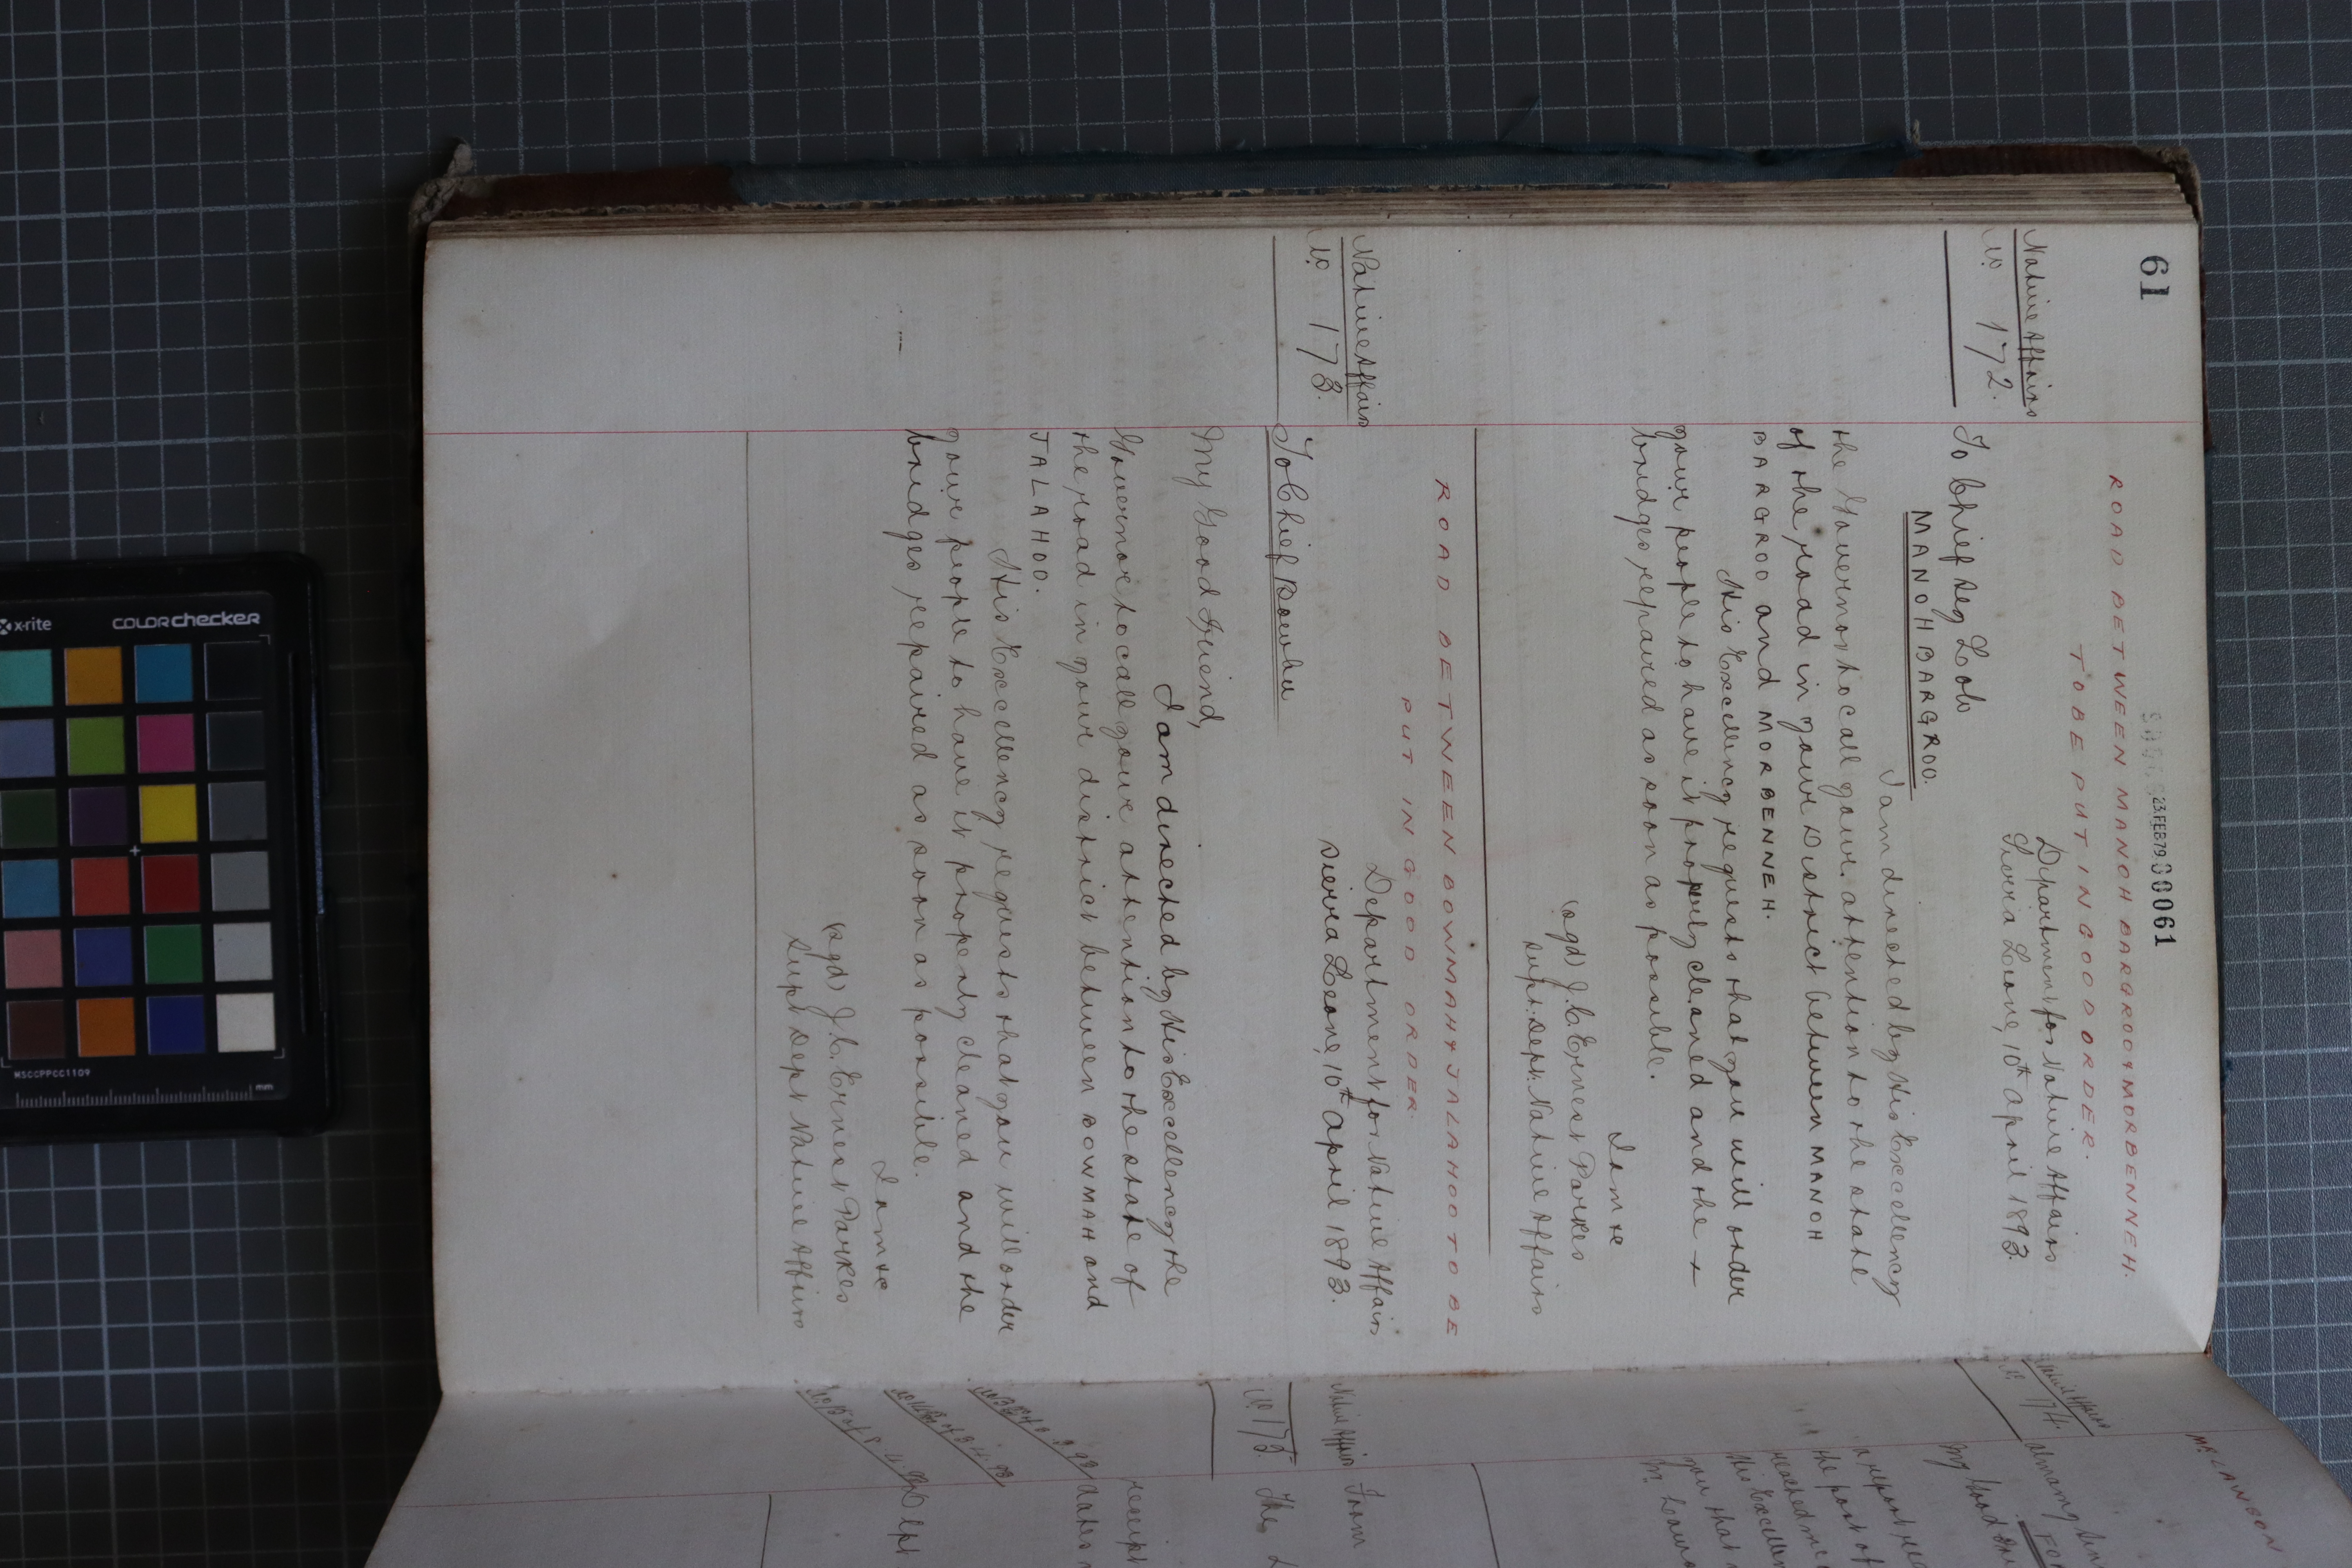 61
23 FEB 79 00061
ROAD BETWEEN MANOH BARGROO & MORBENNEH.
TO BE PUT IN GOOD ORDER.
Native Affairs
No. 172.
Department for Native Affairs
Sierra Leone, 10th April 1893.
To Chief Seg Lolo
MANOH BARGROO.
I am directed by His Excellency
the Governor to call your attention to the state
of the road in your District between MANOH
BARGROO and MORBENNEH.
His Excellency requests that you will order
your people to have it properly cleaned and the +
bridges repaired as soon as possible.
I am &c
(sgd) J. C. Ernest Parkes
Supt. Dept. Native Affairs
ROAD BETWEEN BOWMAH & JALAHOO TO BE
PUT IN GOOD ORDER.
Native Affairs
No. 173.
Department for Native Affairs
Sierra Leone, 10th April 1893.
To Chief
My Good Friend,
I am directed by His Excellency the
Governor to call your attention to the state of
the road in your district between BOWMAH and
JALAHOO.
His Excellency requests that you will order
your people to have it properly cleaned and the
bridges repaired as soon as possible.
I am &c
(sgd) J. C. Ernest Parkes
Supt Dept Native Affairs
MR LAWSON
Native Affairs
No. 174.
My Good
a report
the part of
reached me
His Excellen
you that
Native Affairs
No. 175.
From
The
receipt
dates
x-rite
COLORchecker
MSCCPPCC1109
mm